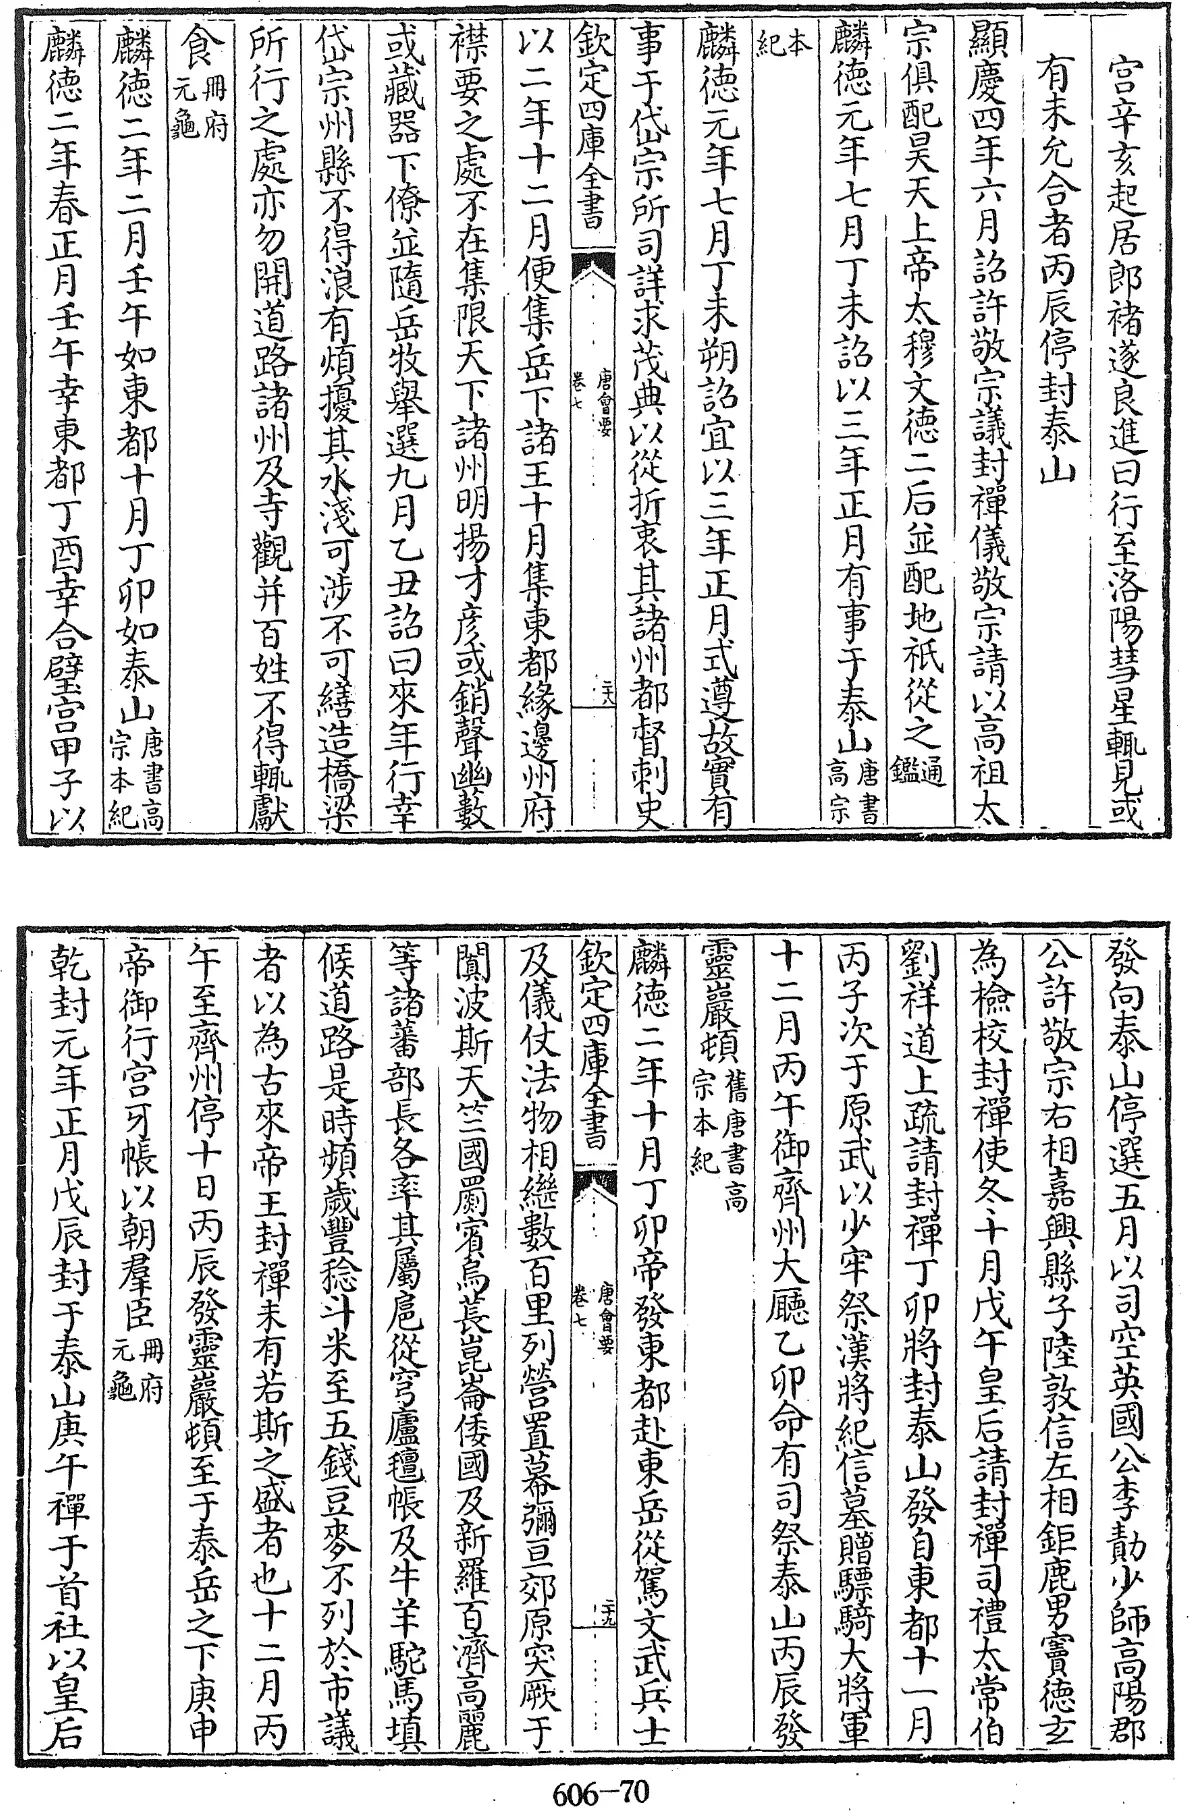 宫辛亥起居郎褚遂良進曰行至洛陽彗星輒見或
有未允合者丙辰停封泰山
顯慶四年六月詔許敬宗議封禪儀敬宗請以高祖太
宗俱配昊天上帝太穆文德二后並配地祇從之通鑑
麟德元年七月丁未詔以三年正月有事于泰山唐書高宗
本紀
麟德元年七月丁未朔詔宜以三年正月式遵故實有
事于岱宗所司詳求茂典以從折衷其諸州都督刺史
欽定四庫全書 唐會要卷七 二十八
以二年十二月便集岳下諸王十月集東都緣邊州府
襟要之處不在集限天下諸州明揚才彦或銷聲幽藪
或藏器下僚並隨岳牧舉選九月乙丑詔曰來年行幸
岱宗州縣不得浪有煩擾其水淺可涉不可繕造橋梁
所行之處亦勿開道路諸州及寺觀并百姓不得輒獻
食冊府元龜
麟德二年二月壬午如東都十月丁卯如泰山唐書高宗本紀
麟德二年春正月壬午幸東都丁酉幸合璧宫甲子以
發向泰山停選五月以司空英國公李勣少師高陽郡
公許敬宗右相嘉興縣子陸敦信左相鉅鹿男竇德玄
為檢校封禪使冬十月戊午皇后請封禪司禮太常伯
劉祥道上疏請封禪丁卯將封泰山發自東都十一月
丙子次于原武以少牢祭漢將紀信墓贈驃騎大將軍
十二月丙午御齊州大廳乙卯命有司祭泰山丙辰發
靈巖頓舊唐書高宗本紀
麟德二年十月丁卯帝發東都赴東岳從駕文武兵士
欽定四庫全書 唐會要卷七 二十九
及儀仗法物相繼數百里列營置幕彌亘郊原突厥于
闐波斯天竺國罽賓烏萇崑崙倭國及新羅百濟高麗
等諸蕃部長各率其屬扈從穹廬氊帳及牛羊駝馬填
候道路是時頻歲豐稔斗米至五錢豆麥不列於市議
者以為古來帝王封禪未有若斯之盛者也十二月丙
午至齊州停十日丙辰發靈巖頓至于泰岳之下庚申
帝御行宫牙帳以朝羣臣冊府元龜
乾封元年正月戊辰封于泰山庚午禪于首社以皇后
606-70